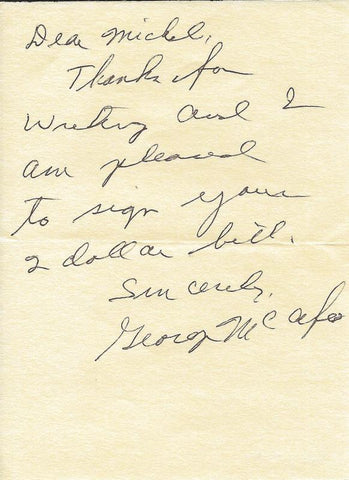 Dear Michel,
Thanks for
writing and I
am pleased
to sign your
2 dollar bill.
Sincerely,
George McAfee